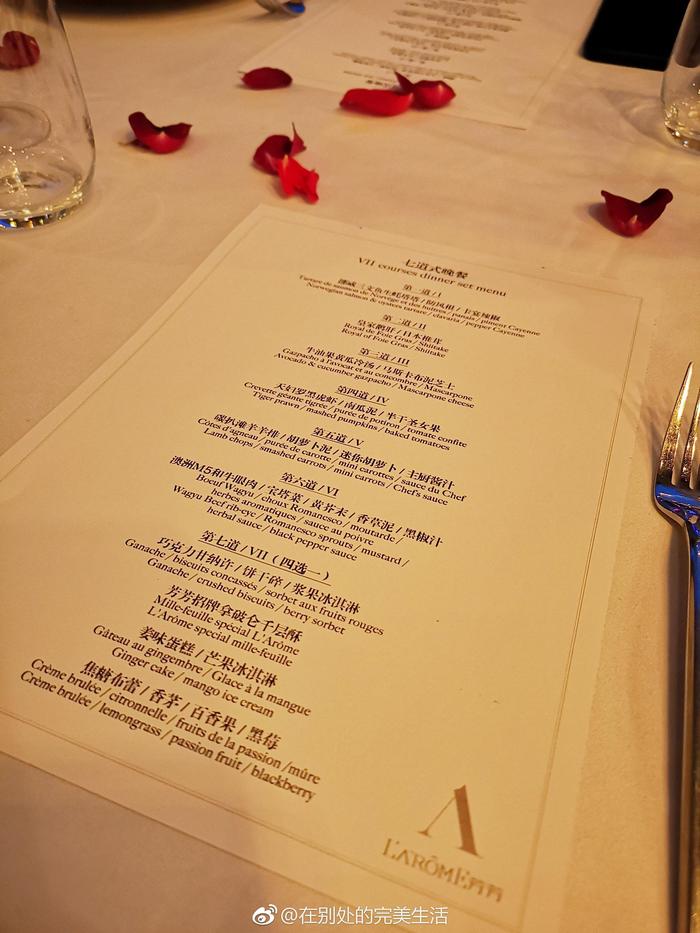 七道式晚餐
VII courses dinner set menu
第一道 / I
挪威三文鱼生蚝塔塔 / 防风根 / 卡宴辣椒
Tartare de saumon de Norvège et des huîtres / panais / piment Cayenne
Norwegian salmon & oysters tartare / clavaria / pepper Cayenne
第二道 / II
皇家鹅肝 / 日本椎茸
Royal de Foie Gras / Shiitake
Royal of Foie Gras / Shiitake
第三道 / III
牛油果黄瓜冷汤 / 马斯卡布泥芝士
Gazpacho à l'avocat et au concombre / Mascarpone
Avocado & cucumber gazpacho / Mascarpone cheese
第四道 / IV
天妇罗黑虎虾 / 南瓜泥 / 半干圣女果
Crevette géante tigrée / purée de potiron / tomate confite
Tiger prawn / mashed pumpkins / baked tomatoes
第五道 / V
碳扒滩羊羊排 / 胡萝卜泥 / 迷你胡萝卜 / 主厨酱汁
Côtes d'agneau / purée de carotte / mini carottes / sauce du Chef
Lamb chops / smashed carrots / mini carrots / Chef's sauce
第六道 / VI
澳洲M5和牛眼肉 / 宝塔菜 / 黄芥末 / 香草泥 / 黑椒汁
Boeuf Wagyu / choux Romanesco / moutarde /
herbes aromatiques / sauce au poivre
Wagyu Beef rib-eye / Romanesco sprouts / mustard /
herbal sauce / black pepper sauce
第七道 / VII（四选一）
巧克力甘纳许 / 饼干碎 / 浆果冰淇淋
Ganache / biscuits concassés / sorbet aux fruits rouges
Ganache / crushed biscuits / berry sorbet
芳芳招牌拿破仑千层酥
Mille-feuille spécial L'Arôme
L'Arôme special mille-feuille
姜味蛋糕 / 芒果冰淇淋
Gâteau au gingembre / Glace à la mangue
Ginger cake / mango ice cream
焦糖布蕾 / 香茅 / 百香果 / 黑莓
Crème brulée / citronnelle / fruits de la passion / mûre
Crème brulée / lemongrass / passion fruit / blackberry
L'ARÔME芳芳
@在别处的完美生活